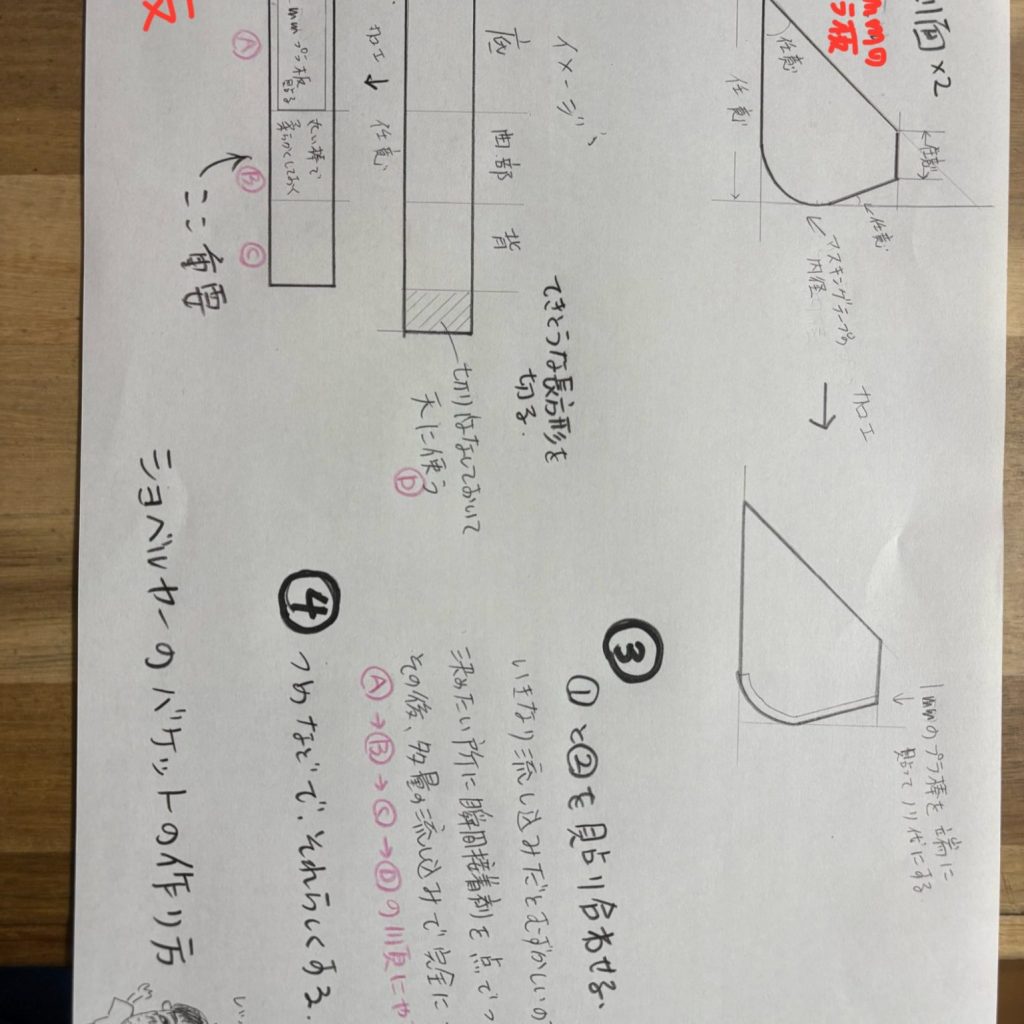 側面×2
mmの
ラ板
任意
任意
任意
任意
マスキングテープの
内径
加工
1mmのプラ棒を端に
貼ってノリ代にする
イメージ
底
曲部
背
てきとうな長方形を
切る.
切りはなしておいて
天に使う
D
加工
任意
mmプラ板
貼る
丸い棒で
柔らかくしておく
A
B
C
ここ重要
③
①と②を貼り合わせる、
いきなり流し込みだとむずかしいの
決めたい所に瞬間接着剤を点でつ
その後、多量の流し込みで完全に
A→B→C→Dの順にや
④
つめなどで、それらしくする.
ショベルカーのバケットの作り方